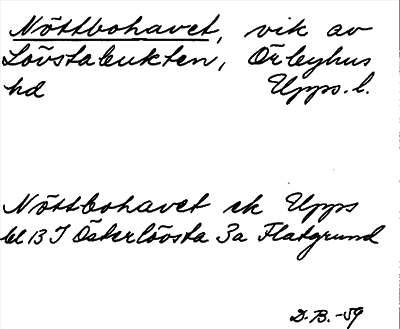 Nöttbohavet, vik av
Lövstabukten, Örbyhus
hd Upps. l.
Nöttbohavet ek Upps
bl 13 I Österlövsta 3a Flatgrund
D.B.-59